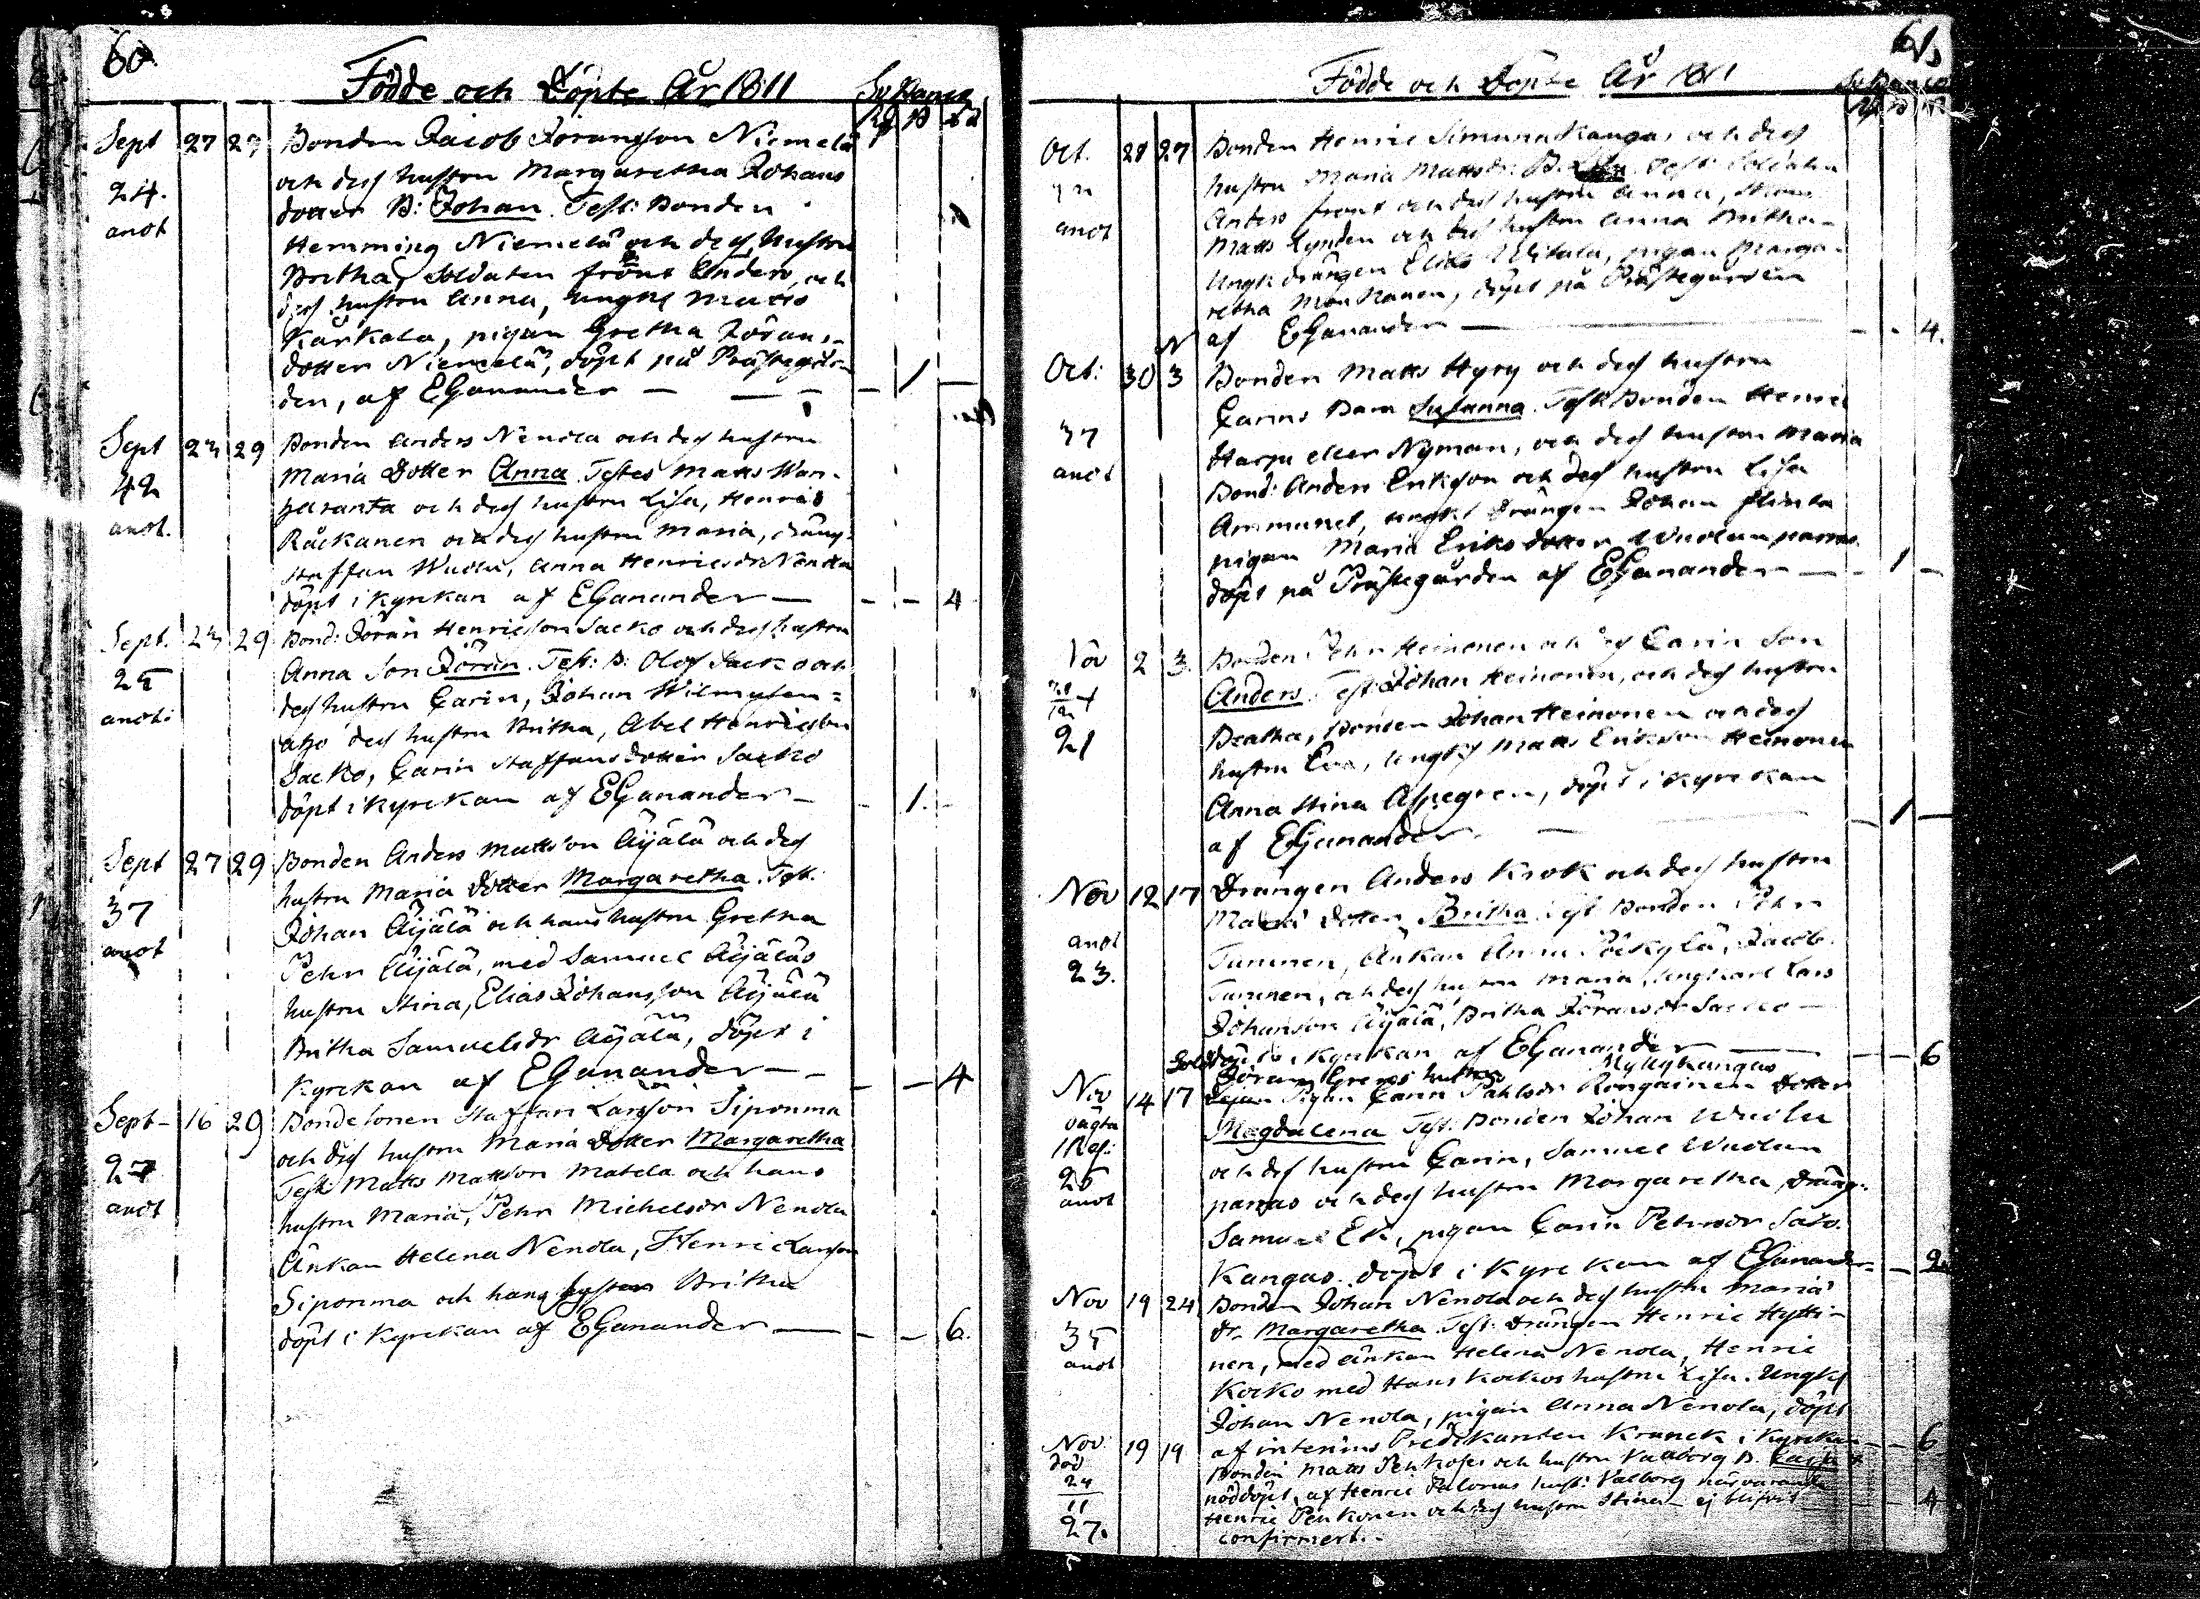 60
Födde och Döpte År 1811
Sv Banco
Rd B rd
Sept 27 29 Bonden Jacob Joransson Niemelä
24.
anot
och desf hustru Margaretha Johans
dotter B: Johan. Test: Bonden
Hemming Niemelä och desf hustru
Britha, Soldaten Anders, och
desf hustru Anna, ungkl Matts
Kärkola, pigan Gretha Jörans-
dotter Niemelä, döpt på Prästegår-
den, af EGanander — 1 —
Sept 29 Bonden Anders Nenola och desf hustru
42
anot.
Maria Dotter Anna Testes Matts Wan-
haranta och desf hustru Lisa, Henric
Räckänen och desf hustru Maria, dräng:
Staffan Wuolu, Anna Henricsdr Nenola
döpt i Kyrkan af EGanander — - - 4
Sept. 29 Bond: Jöran Henricsson Sacko och desf hustru
25
anot:
Anna Son Jöran. Test: B: Olof Sacko och
desf hustru Carin, Johan
desf hustru Britha, Abel Henricsson
Sacko, Carin Staffansdotter Sacko
döpt i Kyrckan af EGanander — - 1. -
Sept 27 29 Bonden Anders Mattsson Äijälä och desf
37
anot
hustru Maria Dotter Margaretha. Test:
Johan Äijälä och hans hustru Gretha
Pehr Äijälä, med Samuel Äijäläs
hustru Stina, Elias Johansson Äijälä
Britha Samuelsdr Äijälä, döpt i
Kyrckan af EGanander — - - 4
Sept- 16 29 Bondesonen Staffan Larsson Siponma
27
anot
och desf hustru Maria Dotter Margaretha
Test: Matts Mattsson Matela och hans
hustru Maria, Pehr Michelsdr Nenola
Änkan Helena Nenola, Henric Larsson
Siponma och hans syster Britha
döpt i Kyrckan af EGanander — - - 6.
61
Födde och Döpte År 1811
Sv Banco
Oct. 27 Bonden Henric Simunankangas och desf
anot
hustru Maria Mattsdr: B. Test: Soldaten
Anders front och desf hustru Anna,
Matts Lynden och desf hustru Anna Britha-
Ungk: drängen Elias Witala, pigan Marga-
retha Monkanen, döpt på Prästegården
af EGanander — - - 4.
Oct: 30 N 3 Bonden Matts Hyry och desf hustru
37
anot
Carins Barn Susanna. Test: Bonden Henric
Harju eller Nyman, och desf hustru Maria
Bond: Anders Ericsson och desf hustru Lisa
Ammunet, ungkl Drängen Johan Flinta
pigan Maria Eriksdotter Wuolunparras
döpt på Prästegården af EGanander — - 1 -
Nov 2 3. Bonden Pehr Heinonen och desf Carin Son
21
Anders. Test: Johan Heinonen, och desf hustru
Beatha, Bonden Johan Heinonen och desf
hustru Eva, ungkl Matts Ericsson Heinonen
Anna Stina Alpegren, döpt i Kyrckan
af EGanander — - 1 -
Nov 12 17 Drängen Anders Krok och desf hustru
anot
23.
Maria dotter Britha. Test: Bonden Pehr
Tuninen, Änkan Anna Pöckylä, Jacob
Tuninen, och desf hustru Maria, ungkarl Lars
Johansson Äijälä, Britha Jöransdr Sacko —
döpt i Kyrckan af EGanander — - - 6
Sold: Jöran Grens hustru Myllykangas
Nov 14 17 Pigan Carin Pahlsdr Rongainen Dotter
oägta
25
anot
Magdalena Test: Bonden Johan Wuolu
och desf hustru Carin, Samuel Wuolun
parras och desf hustru Margaretha, Dräng:
Samuel Ek, pigan Carin Pehrsdr Salo
Kangas. döpt i Kyrckan af EGanander - - 2
Nov 19 24 Bonden Johan Nenola och desf hustru Maria
35
anot
dr Margaretha. Test: Drängen Henric Hytti-
nen, med änkan Helena Nenola, Henric
Kocko med Hans Kockos hustru Lisa. Ungkl
Johan Nenola, pigan Anna Nenola, döpt
af interims Predikanten Kranck i Kyrckan - - 6
Nov: 19 19 Bonden Matts Penkonen och hustru Valborg B.
död
24
11
27.
nöddöpt, af Henric hust: Valborg närvarande
Henric Penkonen och desf hustru Stina - ej blifvit - 4
confirmert. -